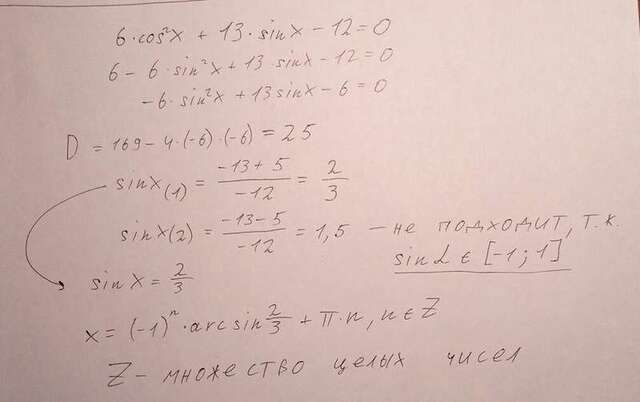 6·cos²x + 13·sinx − 12 = 0
6 − 6·sin²x + 13·sinx − 12 = 0
−6·sin²x + 13sinx − 6 = 0
D = 169 − 4·(−6)·(−6) = 25
sinx(1) = (−13 + 5)/(−12) = 2/3
sinx(2) = (−13 − 5)/(−12) = 1,5 − не подходит, т.к.
sinα ∈ [−1; 1]
sinx = 2/3
x = (−1)ⁿ·arcsin 2/3 + π·n, n ∈ Z
Z − множество целых чисел